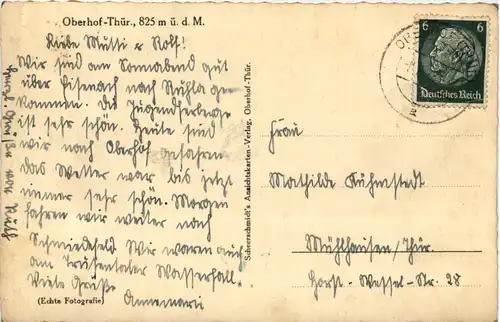 Oberhof-Thür., 825 m ü. d. M.
Liebe Mutti u. Rolf!
Wir sind am Sonnabend gut
über Eisenach nach Ruhla ge-
kommen. Die Jugendherberge
ist sehr schön. Heute sind
wir nach Oberhof gefahren
das Wetter war bis jetzt
immer sehr schön. Morgen
fahren wir weiter nach
Schmiedefeld. Wir waren auch
am Trusentaler Wasserfall.
Viele Grüße
Annemarie
(Echte Fotografie)
Grüße von
Scheerschmidt's Ansichtskarten-Verlag, Oberhof-Thür.
6 6
Deutsches Reich
Frau
Mathilde Kuhmstedt
Mühlhausen/Thür.
Horst-Wessel-Str. 28